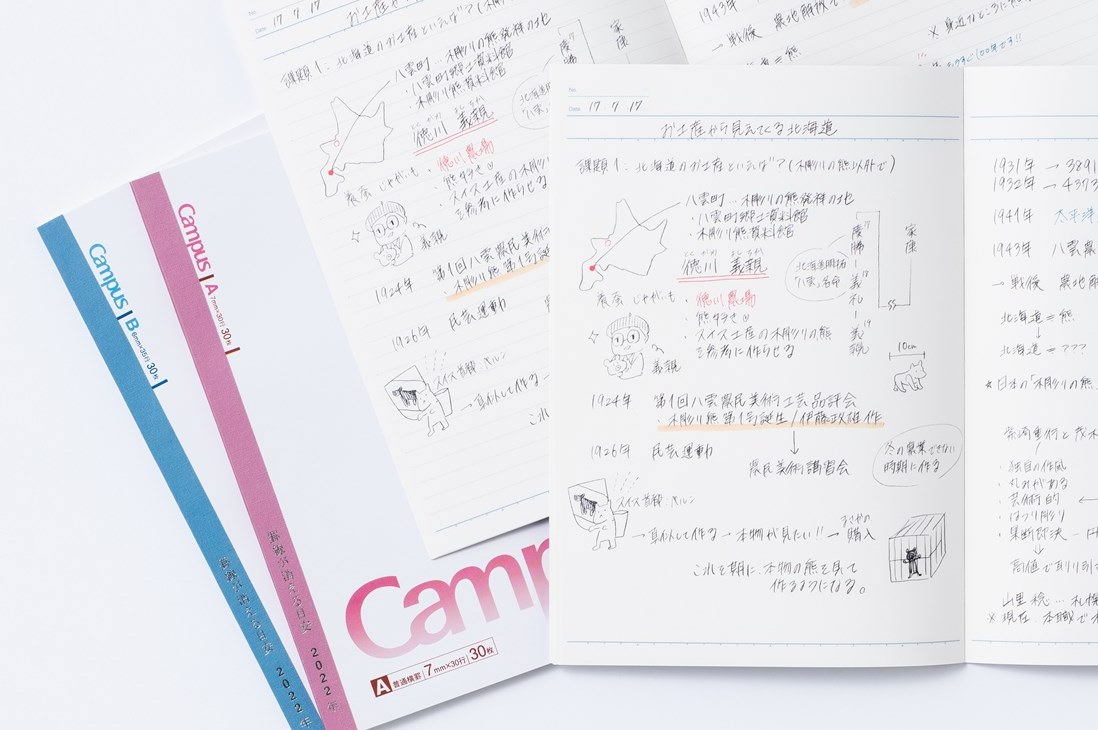 Campus B 6mm×35行 30枚
罫線が消える目安 2022年
Campus A 7mm×30行 30枚
罫線が消える目安 2022年
Cam
A 普通横罫 7mm×30行 30枚
No.
Date 17 7 17
お土産といえば?(木彫りの
課題1:北海道のお土産といえば"?(木彫りの熊
八雲町…木彫りの熊発祥の地
・八雲町郷土資料館
・木彫り熊資料館
徳川 義親
・徳川農場
・熊好き
・スイス土産の木彫り
を参考に作らせる
義親
1924年 第1回八雲農民美術
木彫り熊第1号誕生
1926年 民芸運動
スイス首都:ベルン
→真似して作る→
これ
1943年
→戦後
北海道=熊
※身近なところに
No.
Date 17 7 17
お土産から見えてくる北海道
課題1:北海道のお土産といえば"?(木彫りの熊以外で)
八雲町…木彫りの熊発祥の地
・八雲町郷土資料館
・木彫り熊資料館
とくがわ よしちか
徳川 義親
北海道開拓
"八雲"命名
17
慶勝ー18義礼ー19義親
家康
・徳川農場
・熊好き
・スイス土産の木彫りの熊
を参考に作らせる
義親
10cm
1924年 第1回八雲農民美術工芸品評会
・木彫り熊第1号誕生/伊藤政雄作
↓
農民美術講習会
冬の農業できない
時期に作る
1926年 民芸運動
スイス首都:ベルン
→真似して作る→本物が見たい!!→購入
これを期に、本物の熊を見て
作るようになる。
1931年 → 3891
1932年 → 4373
1941年 太平洋
1943年 八雲農
→戦後
北海道=熊
↓
北海道=???
★日本の「木彫りの熊
柴崎重行と茂木
・独自の作風
・丸みがある
・芸術的 ←
・はつり彫り
・果断即決
↓
高値で取り引き
山里稔…札幌
※現在 本職で木